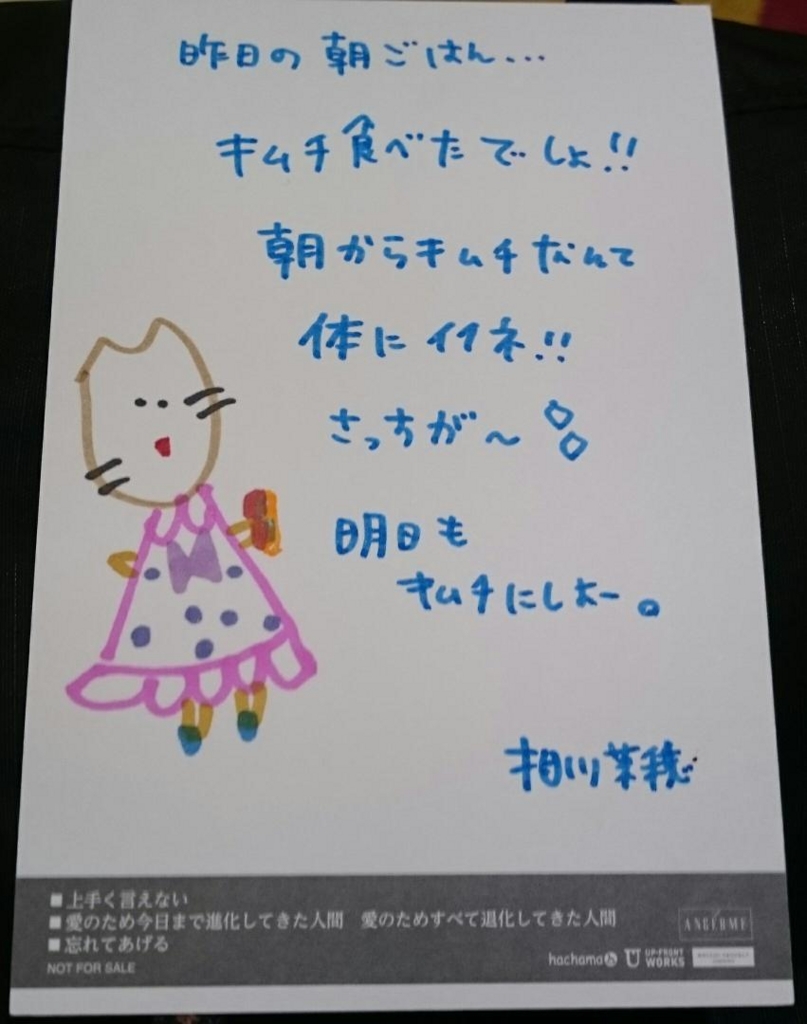 昨日の朝ごはん...
キムチ食べたでしょ!!
朝からキムチなんて
体にイイネ!!
さっちが〜
明日も
キムチにしよー。
相川茉穂
■上手く言えない
■愛のため今日まで進化してきた人間　愛のためすべて退化してきた人間
■忘れてあげる
NOT FOR SALE
ANGERME
hachama UP-FRONT WORKS